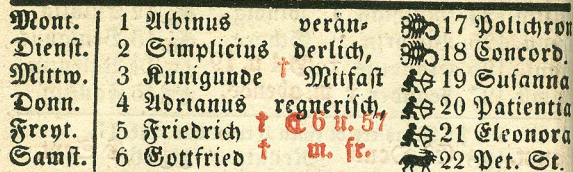 Mont. 1 Albinus verän- 17 Polichron
Dienst. 2 Simplicius derlich, 18 Concord.
Mittw. 3 Kunigunde † Mitfast 19 Susanna
Donn. 4 Adrianus regnerisch, 20 Patientia
Freyt. 5 Friedrich † ☾ 6 u. 57 21 Eleonora
Samst. 6 Gottfried † m. fr. 22 Pet. St.